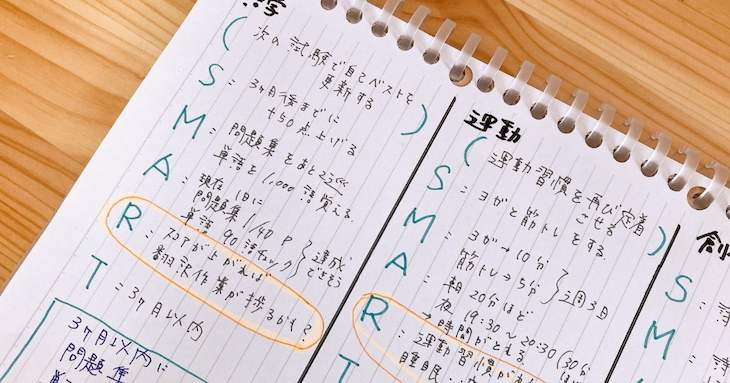 学
( 次の試験で自己ベストを
更新する )
S : 3ヶ月後までに
+50点上げる
M : 問題集をあと2つとく
単語を1,000語覚える
A : 現在1日に
問題集1/40P
単語90語チェック } 達成できそう
R : スコアが上がれば
翻訳作業が捗るかも?
T : 3ヶ月以内
3ヶ月以内に
問題集
運動
( 運動習慣を再び定着
させる )
S : ヨガと筋トレをする
M : ヨガ→10分
筋トレ→5分 } 週3日
A : 朝20分ほど
夜19:30~20:30(30分
→時間がとれる
R : 運動習慣が
睡眠
T
創
S
M
A